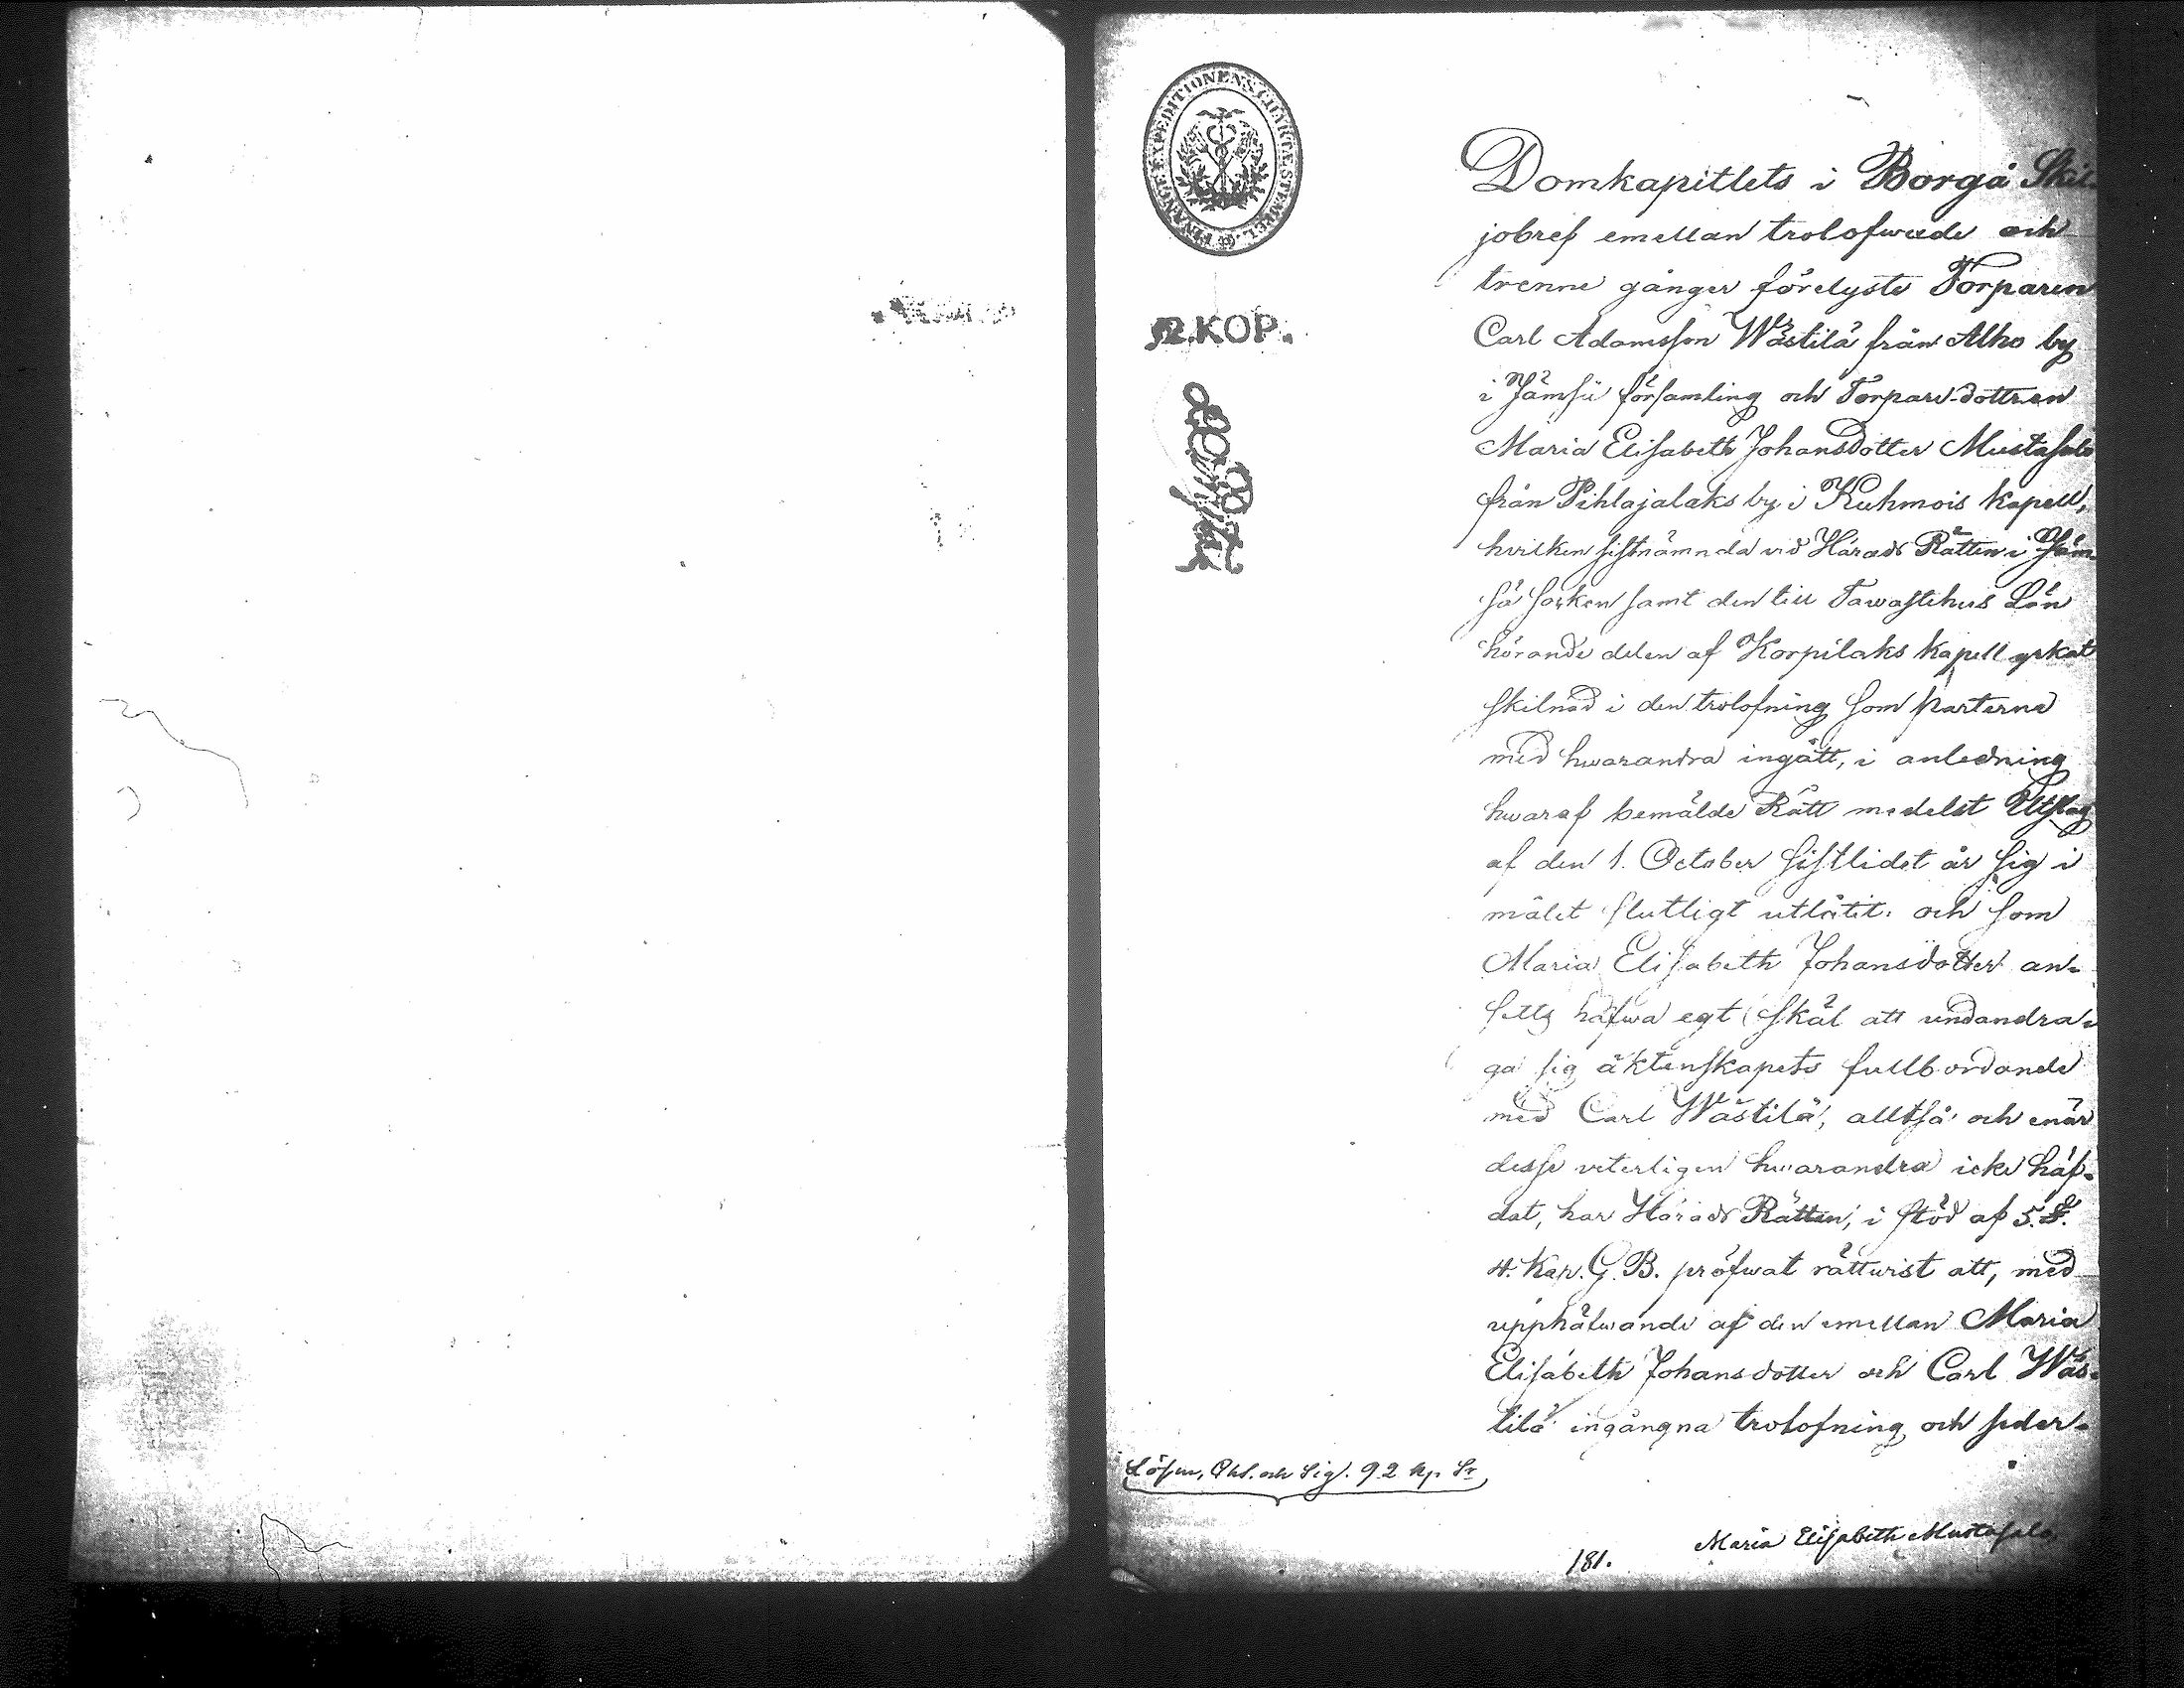 FINANCE EXPEDITIONENS CHARTÆ STEMPEL.
KOP.
Domkapitlets i Borgå Skil-
jobref emellan trolofwade och
trenne gånger förelyste Torparen
Carl Adamsson Wästilä från Alho by
i Jämsä församling och Torpare-dottren
Maria Elisabeth Johansdotter Mustasalo
från Pihlajalaks by i Kuhmois Kapell,
hvilken sistnämnda vid Härads Rätten i Jäm-
sä Socken samt den till Tawastehus Län
hörande delen af Korpilaks Kapell yrkat
skilnad i den trolofning som parterne
med hwarandra ingått, i anledning
hwaraf bemälde Rätt medelst Utslag
af den 1. October sistlidet år sig i
målet slutligt utlåtit: och som
Maria Elisabeth Johansdotter an-
setts hafwa egt skäl att undandra-
ga sig äktenskapets fullbordande
med Carl Wästilä, alltså och enär
desse veterligen hwarandra icke häf-
dat, har Härads Rätten, i stöd af 5. §.
4. Kap. G. B. pröfwat rättvist att, med
upphäfwande af den emellan Maria
Elisabeth Johansdotter och Carl Wäs-
tilä ingångna trolofning och peder-
Lösen, Chs. och Sig. 92 kp. Sr
Maria Elisabeth Mustasalo,
181.